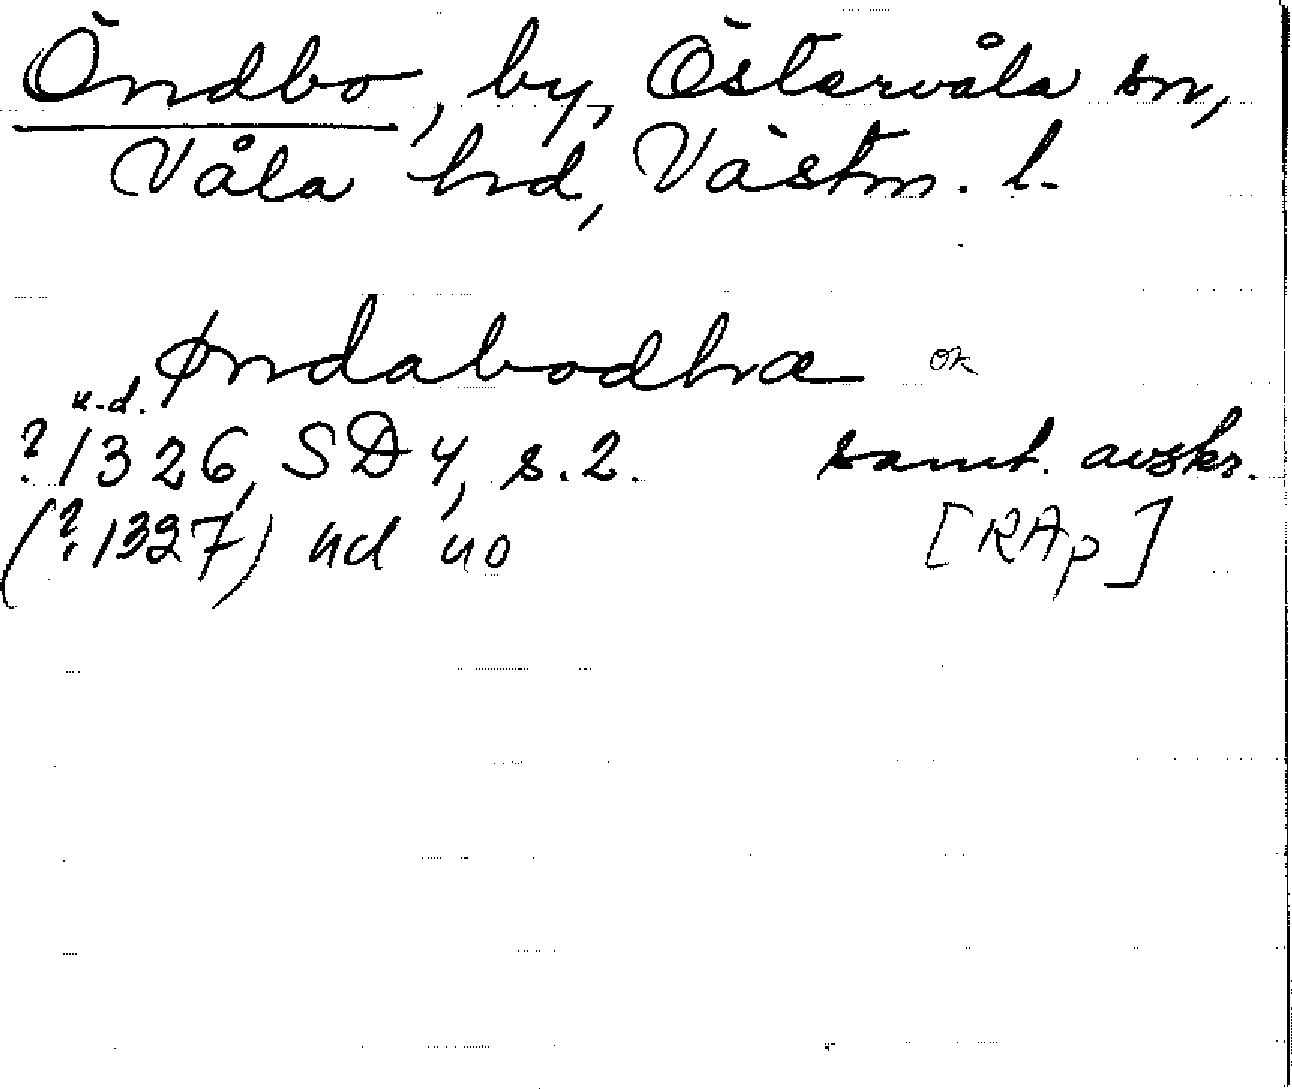 Öndbo, by, Östervåla sn,
Våla hd, Västm. l.
Øndabodhæ ok
u.d.
?1326, SD 4, s. 2. samt. avskr.
(?1327) ud uo [RAp]